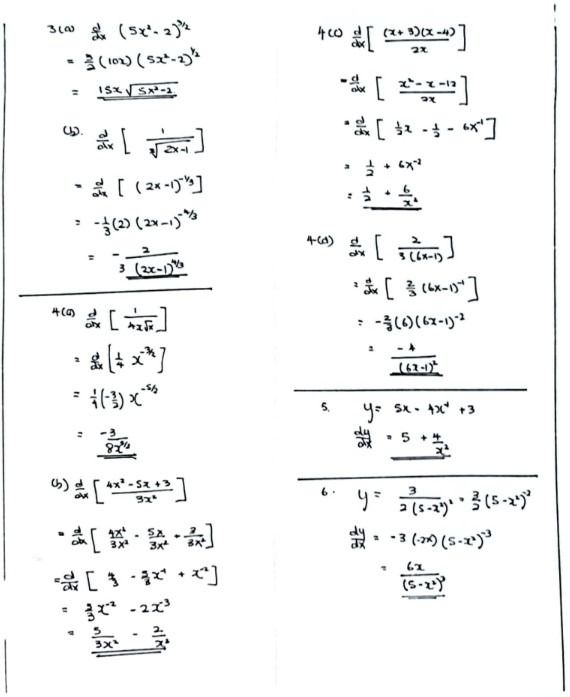 3(a) d/dx (5x² - 2)^(3/2)
= 3/2 (10x) (5x² - 2)^(1/2)
= 15x √(5x² - 2)
(b). d/dx [ 1 / ∛(2x-1) ]
= d/dx [ (2x-1)^(-1/3) ]
= -1/3 (2) (2x-1)^(-4/3)
= - 2 / 3(2x-1)^(4/3)
4(a) d/dx [ 1 / 4x√x ]
= d/dx [ 1/4 x^(-3/2) ]
= 1/4 (-3/2) x^(-5/2)
= -3 / 8x^(5/2)
(b) d/dx [ (4x² - 5x + 3) / 3x² ]
= d/dx [ 4x²/3x² - 5x/3x² + 3/3x² ]
= d/dx [ 4/3 - 5/3 x⁻¹ + x⁻² ]
= 5/3 x⁻² - 2x³
= 5/3x² - 2/x³
4(c) d/dx [ (x+3)(x-4) / 2x ]
= d/dx [ (x² - x - 12) / 2x ]
= d/dx [ 1/2 x - 1/2 - 6x⁻¹ ]
= 1/2 + 6x⁻²
= 1/2 + 6/x²
4(d) d/dx [ 2 / 3(6x-1) ]
= d/dx [ 2/3 (6x-1)⁻¹ ]
= -2/3 (6) (6x-1)⁻²
= -4 / (6x-1)²
5. y = 5x - 4x⁻¹ + 3
dy/dx = 5 + 4/x²
6. y = 3 / 2(5-x²)² = 3/2 (5-x²)⁻²
dy/dx = -3 (-2x) (5-x²)⁻³
= 6x / (5-x²)³